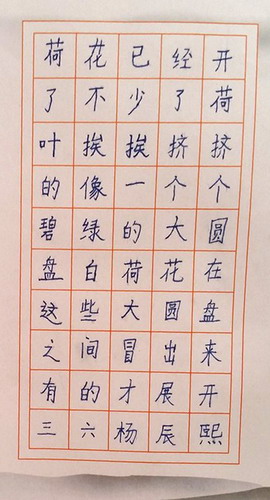 荷花已经开
了不少了荷
叶挨挨挤挤
的像一个个
碧绿的大圆
盘白荷花在
这些大圆盘
之间冒出来
有的才展开
三六杨辰熙